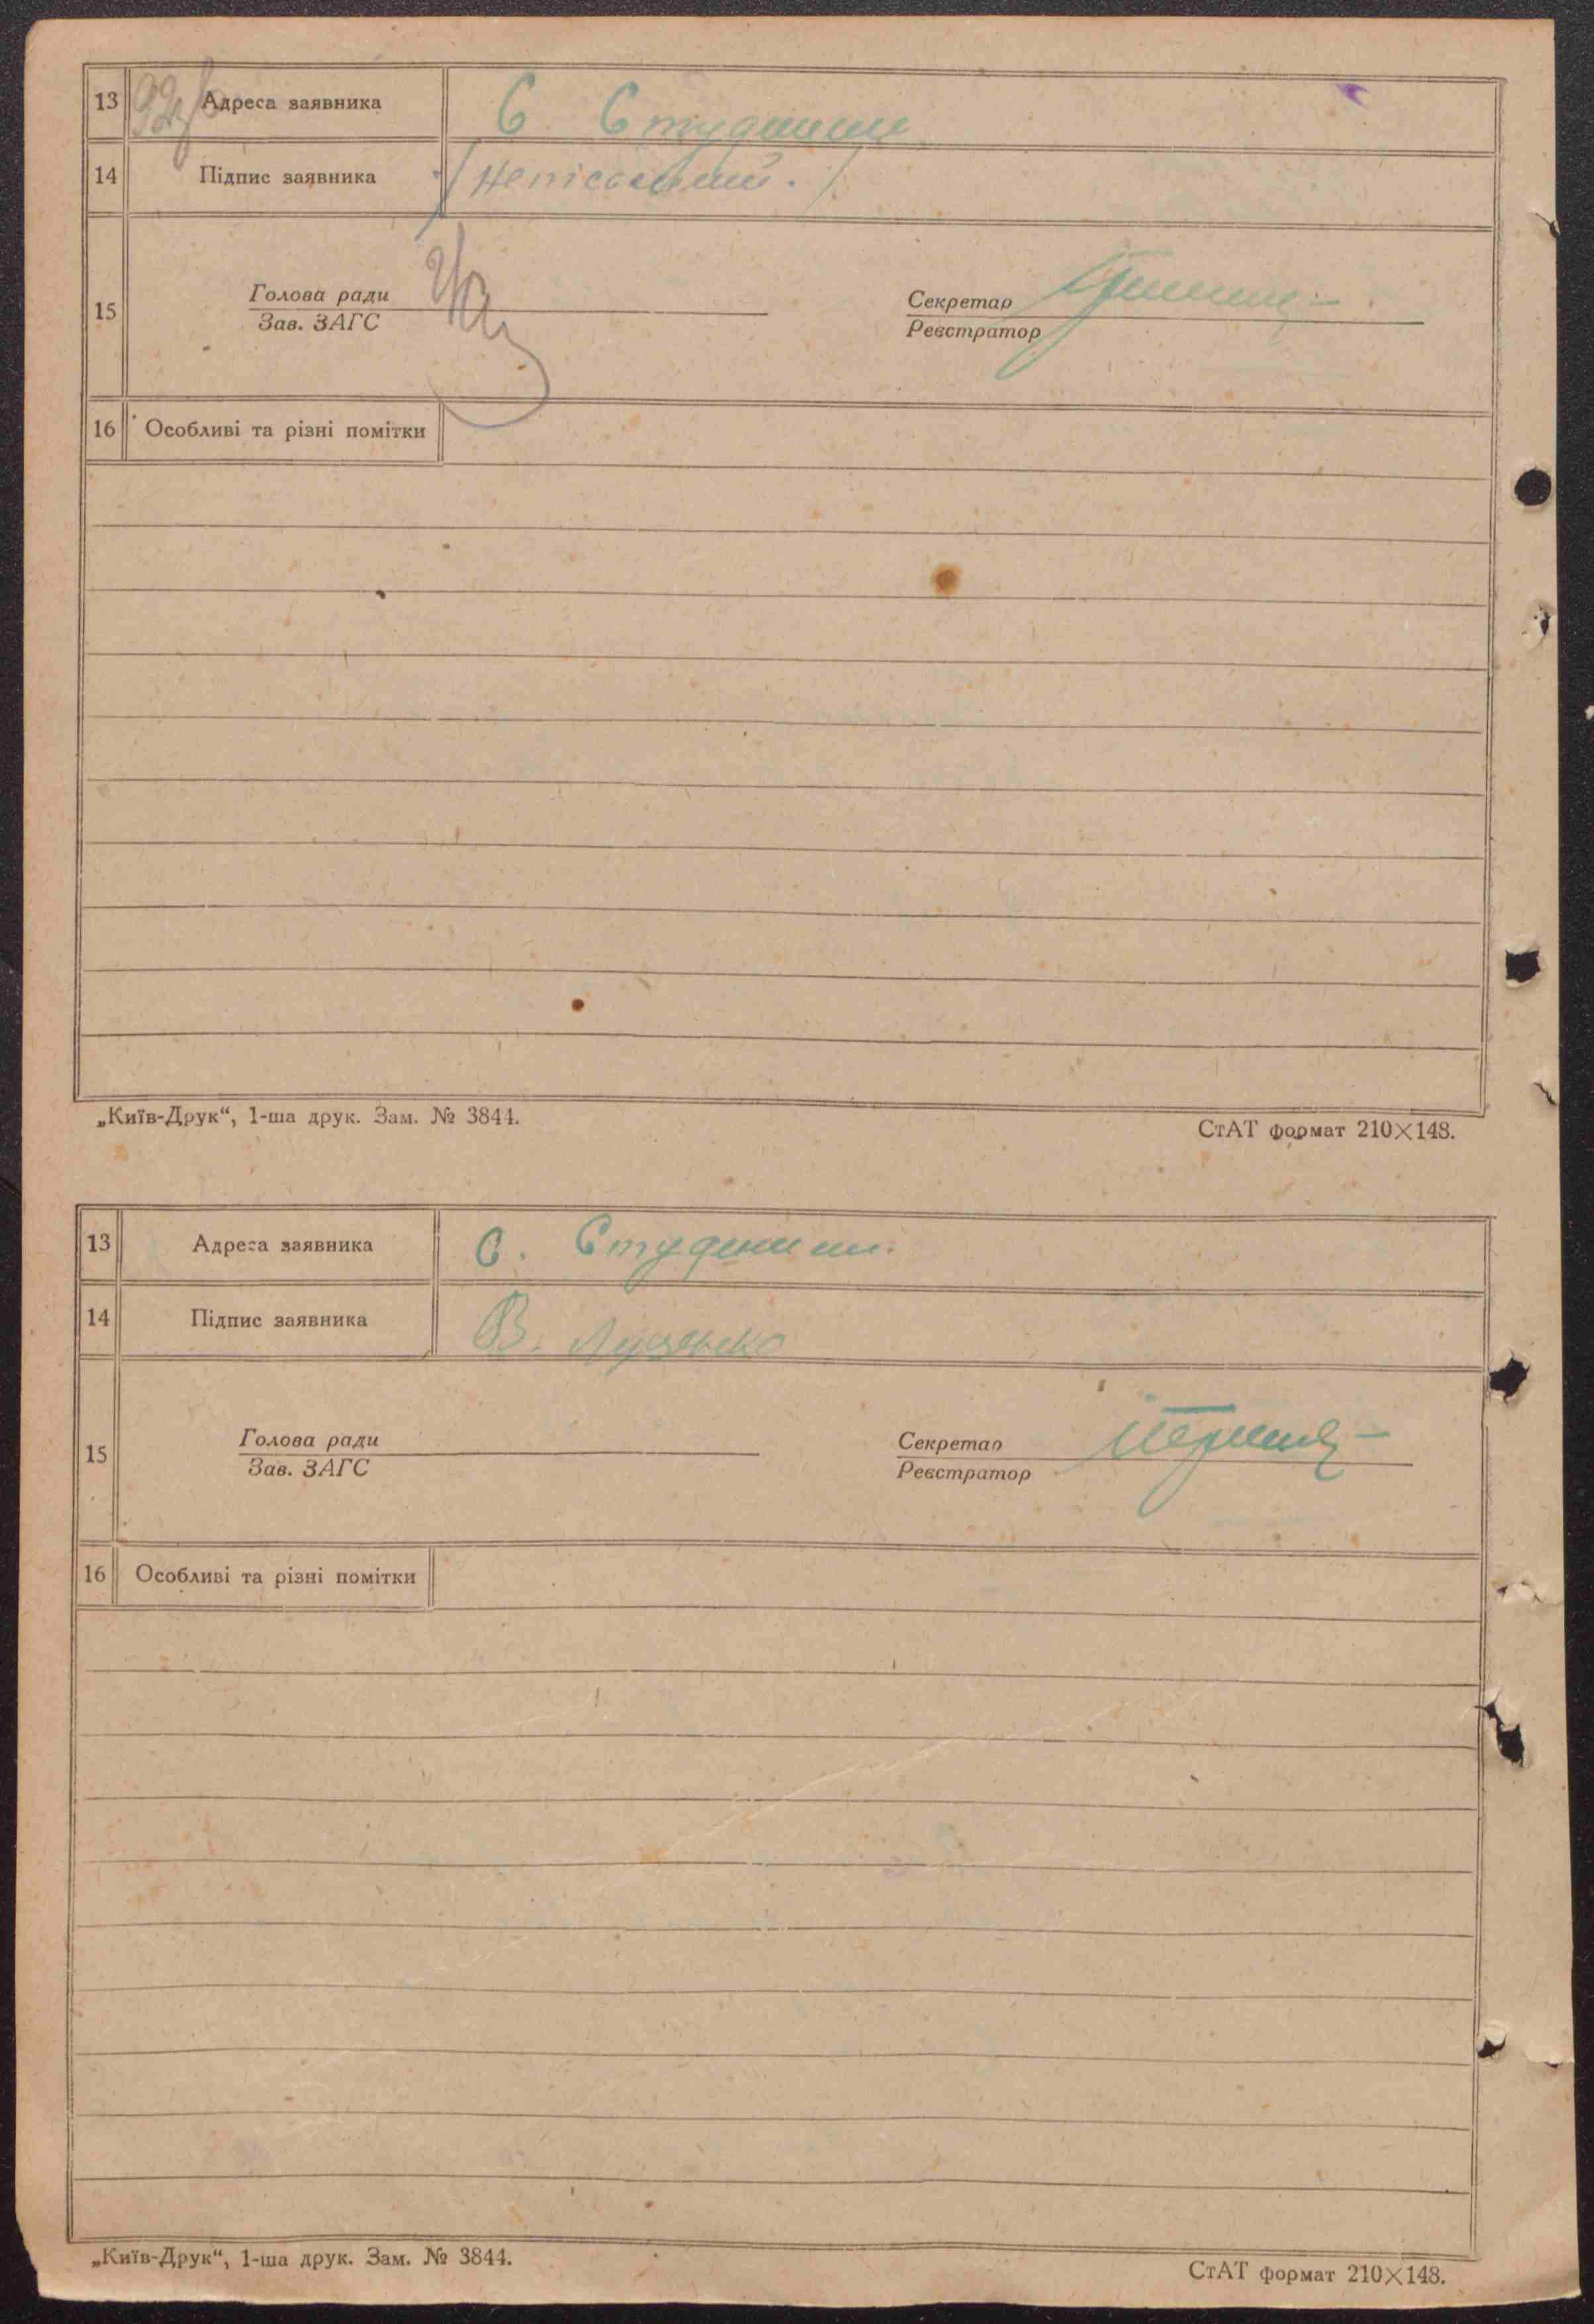 13 Адреса заявника С Студенини
14 Підпис заявника /Неписьмений./
15 Голова ради Секретар
Зав. ЗАГС Реєстратор
16 Особливі та різні помітки
„Київ-Друк“, 1-ша друк. Зам. № 3844. СтАТ формат 210×148.
13 Адреса заявника С. Студенини.
14 Підпис заявника В.
15 Голова ради Секретар
Зав. ЗАГС Реєстратор
16 Особливі та різні помітки
„Київ-Друк“, 1-ша друк. Зам. № 3844. СтАТ формат 210×148.